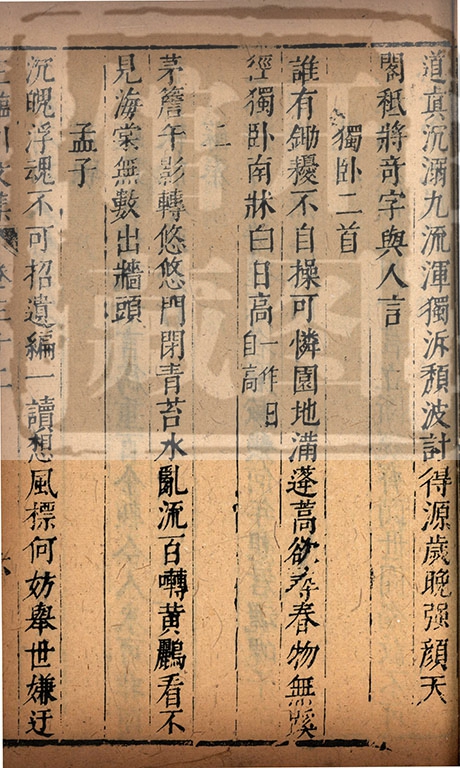 道真沉溺九流渾獨泝頹波討得源歲晚强顏天
閣秪將奇字與人言
獨卧二首
誰有鋤耰不自操可憐園地滿蓬蒿欲尋春物無蹊
徑獨卧南牀白日高一作日自高
二
茅簷午影轉悠悠門閉青苔水亂流百囀黃鸝看不
見海棠無數出牆頭
孟子
沉魄浮魂不可招遺編一讀想風標何妨舉世嫌迂
王臨川文集 卷三十二 六